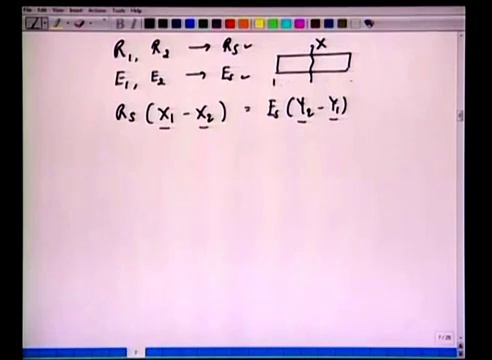 File Edit View Insert Actions Tools Help
R₁, R₂ → Rs ✓
X
E₁, E₂ → Es ✓
1
Rs (X₁ - X₂) = Es (Y₂ - Y₁)
7